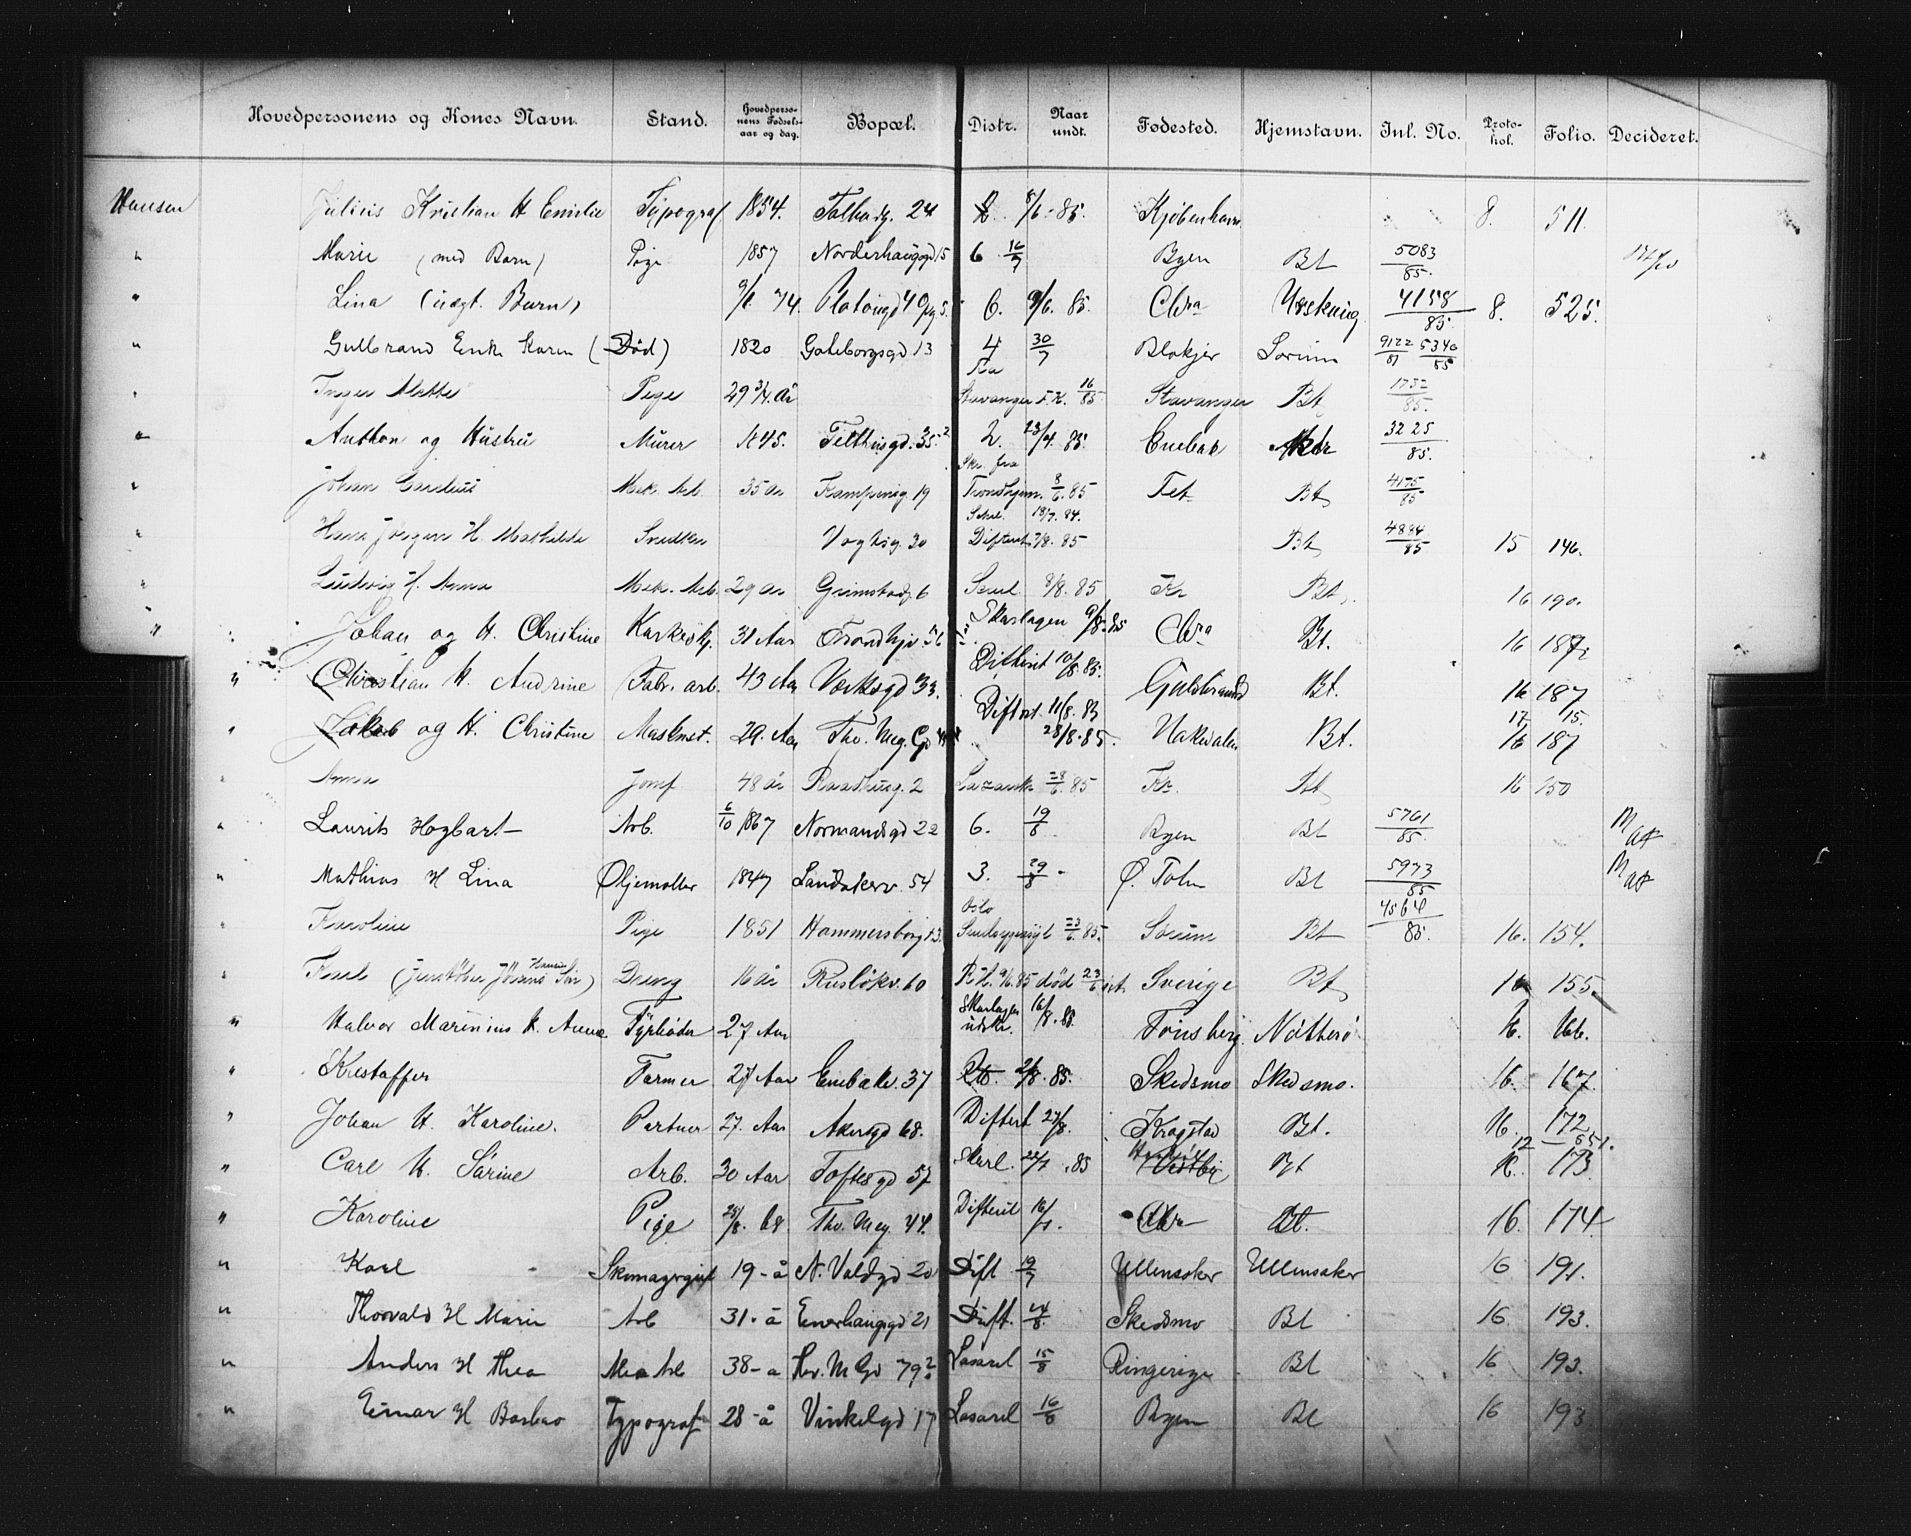 Hovedpersonens og Kones Navn. Stand. Hovedpersonens Fødselsaar og dag. Bopæl. Distr. Naar undt. Fødested. Hjemstavn. Inl. No. Protokol. Folio. Decideret.
Hansen Julius Kristian H Emilie Typograf 1854. 24 8/6 - 85. Kjøbenhavn 8. 511.
" Marie (med Barn) Pige 1857 Norderhaugsgd 15 6 16/7 Byen Bt 5083/85.
" Lina (uægt. Barn) 74. Platousgd 40 6. 9/6. 85. Chra Urskoug 4158/85. 8. 525.
" Gulbrand Enke Karen (Død) 1820 Gøteborgsgd 13 4 30/7 Blakjer Sørum 9122/81 5340/85
" Inger Mathe Pige 29 3/4. År Fra Stavanger F.K. 16/85 Stavanger Bt 1732/85.
" Anthon og Hustru Murer 1845. 2. 23/4. 85. Enebak 3225/85.
" Johan Mek. Arb. 35 år Kampensg 19 Skr. fra Trondhjem. 8/6. 85 Fet Bt 4175/85
" Hans Jørgen H. Mathilde Snedker Vogtsg. 30 Skrl. 18/7. 84. Difterit 7/8. 85 Bt 4884/85 15 146.
" Ludvig H. Anna Mek. Arb. 29 år Grimstadg. 6 8/8. 85 Kr Bt. 16 190.
" Johan og H. Christine 31 Aar Skarlagen 9/8. 85 Chra Bt. 16 187
" Christian H. Andrine Fabr. arb. 43 Aar Værksgd 33. Difterit 10/8. 85. Bt. 16 187
" Jakob og H. Christine Maskinst. 29. Aar Thv. Mey. Gd Difterit. 11/8. 85 28/8. 85. Hakedalen Bt. 17 15. 16 187
" Anna Jomf 48 år Raadhusg. 2 28/6. 85 Kr. Bt 16 150
" Laurits Hogbart Arb. 6/10 1867 Normandsgd 22 6. 19/8 Byen Bt 5761/85.
" Mathias H Lina Oljemøller 1847 Sandakerv. 54 3. 29/8 - Ø. Toten Bt 5973/85
" Karoline Pige 1851 Hammersborg Oslo 23/6. 85. Sørum Bt 4564/85. 16. 154.
" Dreng 16 år Ruseløkv. 60 R.H. 9/6. 85 død 23/6 Sverige Bt 16 155.
" Halvor Marinius H. Anna Fyrbøder 27 Aar Skarlagen udskr. 16/8. 85. Tønsberg Nøtterø 16. 166.
" Kristoffer Farmer 27 Aar Enebakv. 37 2/8. 85. Skedsmo Skedsmo. 16. 167.
" Johan H. Karoline. Partner 27. Aar Akersgd 68. Difterit 27/8. Kragstad Bt. 16. 172
" Carl H. Sørine Arb. 30 Aar Toftesgd 57 Skarl. 22/7. 85 Vestby Bt 12 — 651. 16. 173.
" Karoline Pige 28/8. 68 Thv. Mey. 44. Difterit 16/7. Chra Bt. 16. 174
" Karl 19 - å N. Voldgd 20 Dift. 19/7 Ullensaker Ullensaker 16 191.
" Thorvald H Marie Arb 31 - å Enerhaugsgd 21 Dift. 14/8. Skedsmo Bt 16 193.
" Anders H Thea Mek Arb 38 - å 79 Lasaret 15/8 Ringerige Bt 16 193.
" Einar H Barbro Typograf 28 - å Vinkelgd 17 Lasaret 16/8 Byen Bt 16 193